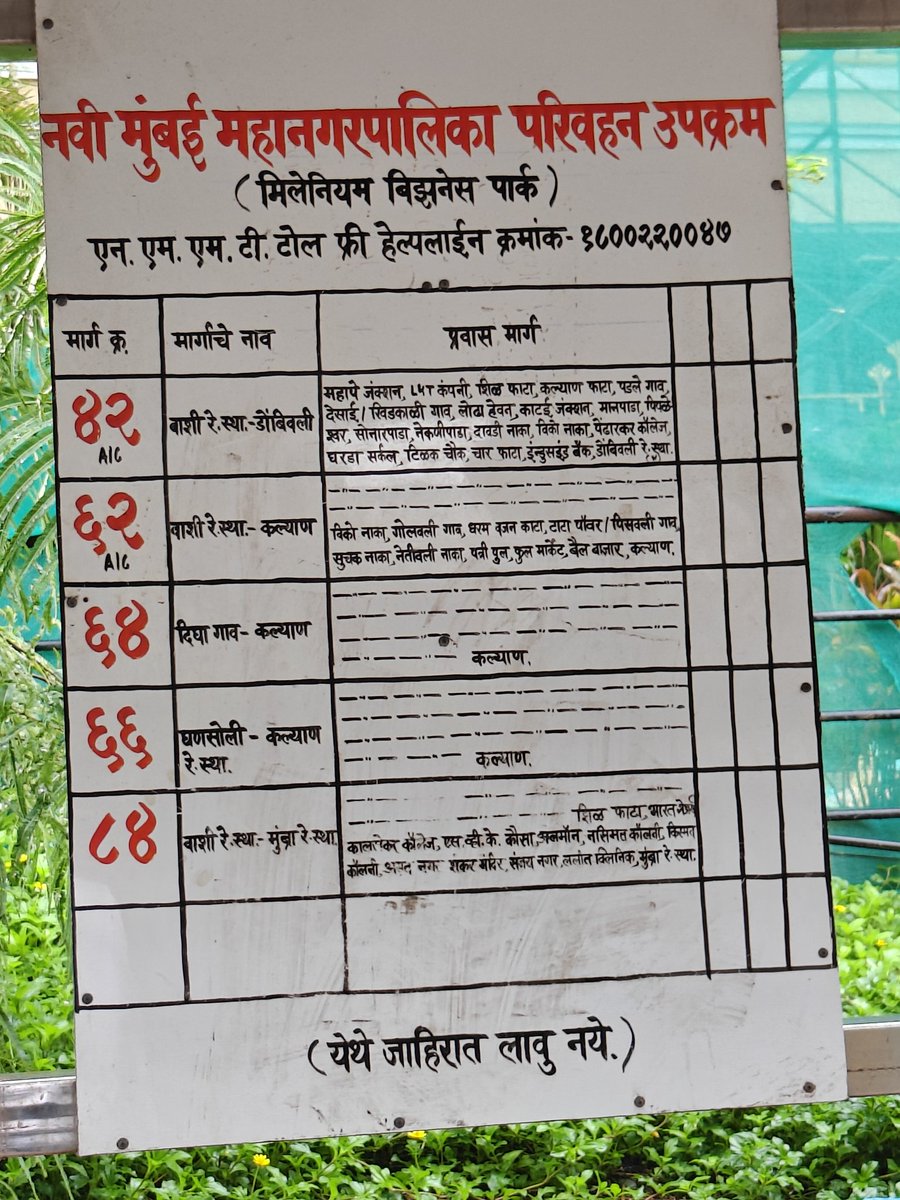 नवी मुंबई महानगरपालिका परिवहन उपक्रम
(मिलेनियम बिझनेस पार्क)
एन. एम. एम. टी. टोल फ्री हेल्पलाईन क्रमांक- १८००२२००४७
मार्ग क्र. मार्गाचे नाव प्रवास मार्ग
४२ A/C
वाशी रे.स्था.-डोंबिवली
महापे जंक्शन, L&T कंपनी, शिळ फाटा, कल्याण फाटा, पडले गाव,
देसाई/खिडकाळी गाव, लोढा हेवन, काटई जंक्शन, मानपाडा, पिंपळे-
श्वर, सोनारपाडा, नेकणीपाडा, दावडी नाका, विको नाका, पेंढारकर कॉलेज,
घरडा सर्कल, टिळक चौक, चार फाटा, इन्डुसइंड बँक, डोंबिवली रे.स्था.
६२ A/C
वाशी रे.स्था.- कल्याण
—"—"—"—"—"—"—"—
—"—"—"—"—"—"—"—
विको नाका, गोलवली गाव, धरम वजन काटा, टाटा पॉवर/पिसवली गाव,
सुचक नाका, नेतीवली नाका, पत्री पुल, फुल मार्केट, बैल बाजार, कल्याण.
६४
दिघा गाव- कल्याण
कल्याण.
६६
घणसोली - कल्याण
रे.स्था.
कल्याण.
८४
वाशी रे.स्था.- मुंब्रा रे.स्था.
शिळ फाटा, भारत
कॉलेज, एस.व्ही.के. कौसा, नसिमत कॉलनी, किस्मत
कॉलनी, नगर शंकर मंदिर, संजय नगर, क्लिनिक, मुंब्रा रे.स्था.
(येथे जाहिरात लावु नये.)